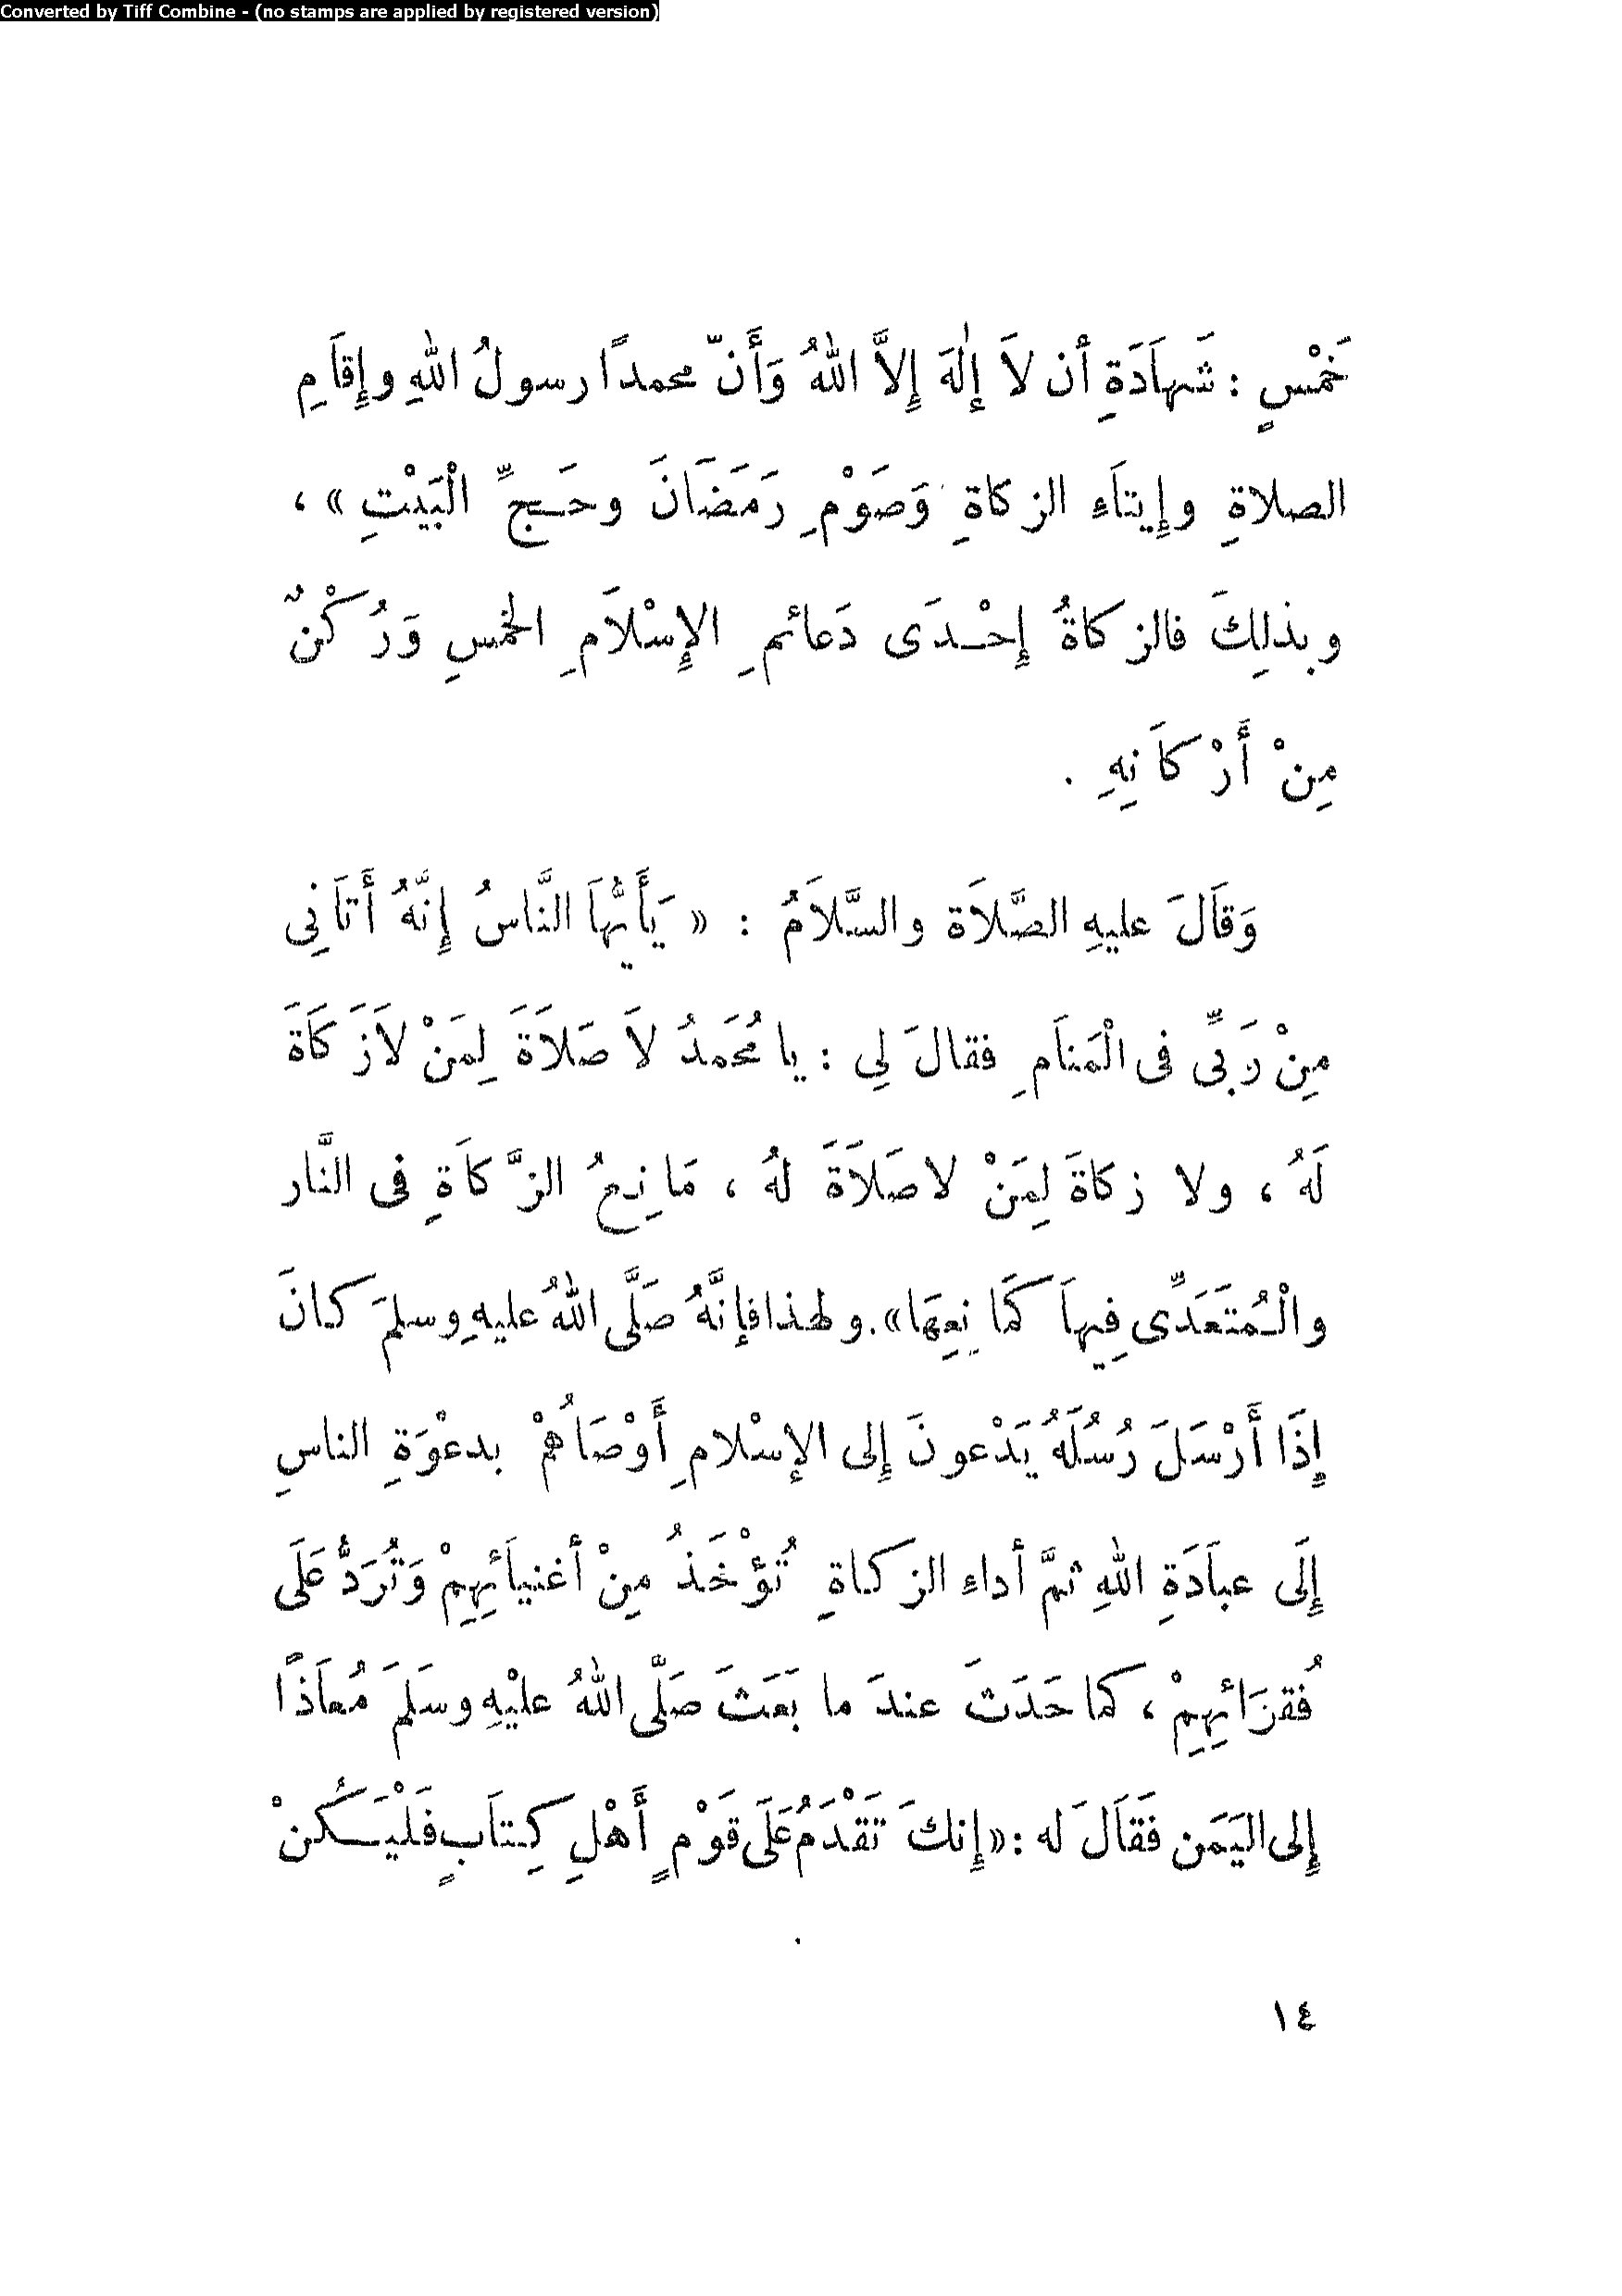 Converted by Tiff Combine - (no stamps are applied by registered version)
خَمْسٍ : شَهاَدَةِ أن لاَ إِلٰهَ إِلاَّ اللهُ وَأَنّ محمدًا رسولُ اللهِ وإِقاَمِ
الصلاةِ وإِيتاَءِ الزكاةِ وَصَوْمِ رَمَضَانَ وحَجِّ الْبَيْتِ » ،
وبذلِكَ فالزكاةُ إِحْدَى دَعائمِ الإِسْلاَمِ الخمسِ وَرُكْنٌ
مِنْ أَرْكاَنِهِ .
وَقاَلَ عليهِ الصَّلاَة والسَّلاَمُ : « يَأَيُّهاَ النَّاسُ إِنَّهُ أَتاَنِى
مِنْ رَبِّى فى الْمَناَمِ فقالَ لِى : يا مُحَمَدُ لاَ صَلاَةَ لِمَنْ لاَزَكَاةَ
لَهُ ، ولا زكاةَ لِمَنْ لا صَلاَةَ لهُ ، مَانِعُ الزَّكاَةِ فى النَّار
والْمُتَعَدِّى فِيهاَ كَمَانِعِهَا». ولهذا فإنَّهُ صَلَّى اللهُ عليهِ وسلمَ كانَ
إِذَا أَرْسَلَ رُسُلَهُ يَدْعونَ إِلى الإسْلامِ أَوْصَاهُمْ بدعْوَةِ الناسِ
إِلَى عباَدَةِ اللهِ ثمَّ أداءِ الزكاةِ تُؤْخَذُ مِنْ أغنياَئِهِمْ وَتُرَدُّ عَلَى
فُقرَائِهِمْ ، كما حَدَثَ عندَ ما بَعَثَ صَلّى اللهُ عليْهِ وسَلمَ مُعاَذًا
إِلى اليَمَن فَقاَلَ له : «إِنكَ تَقْدَمُ عَلَى قَوْمٍ أَهْلِ كِتاَبٍ فَلْيَكُنْ
١٤